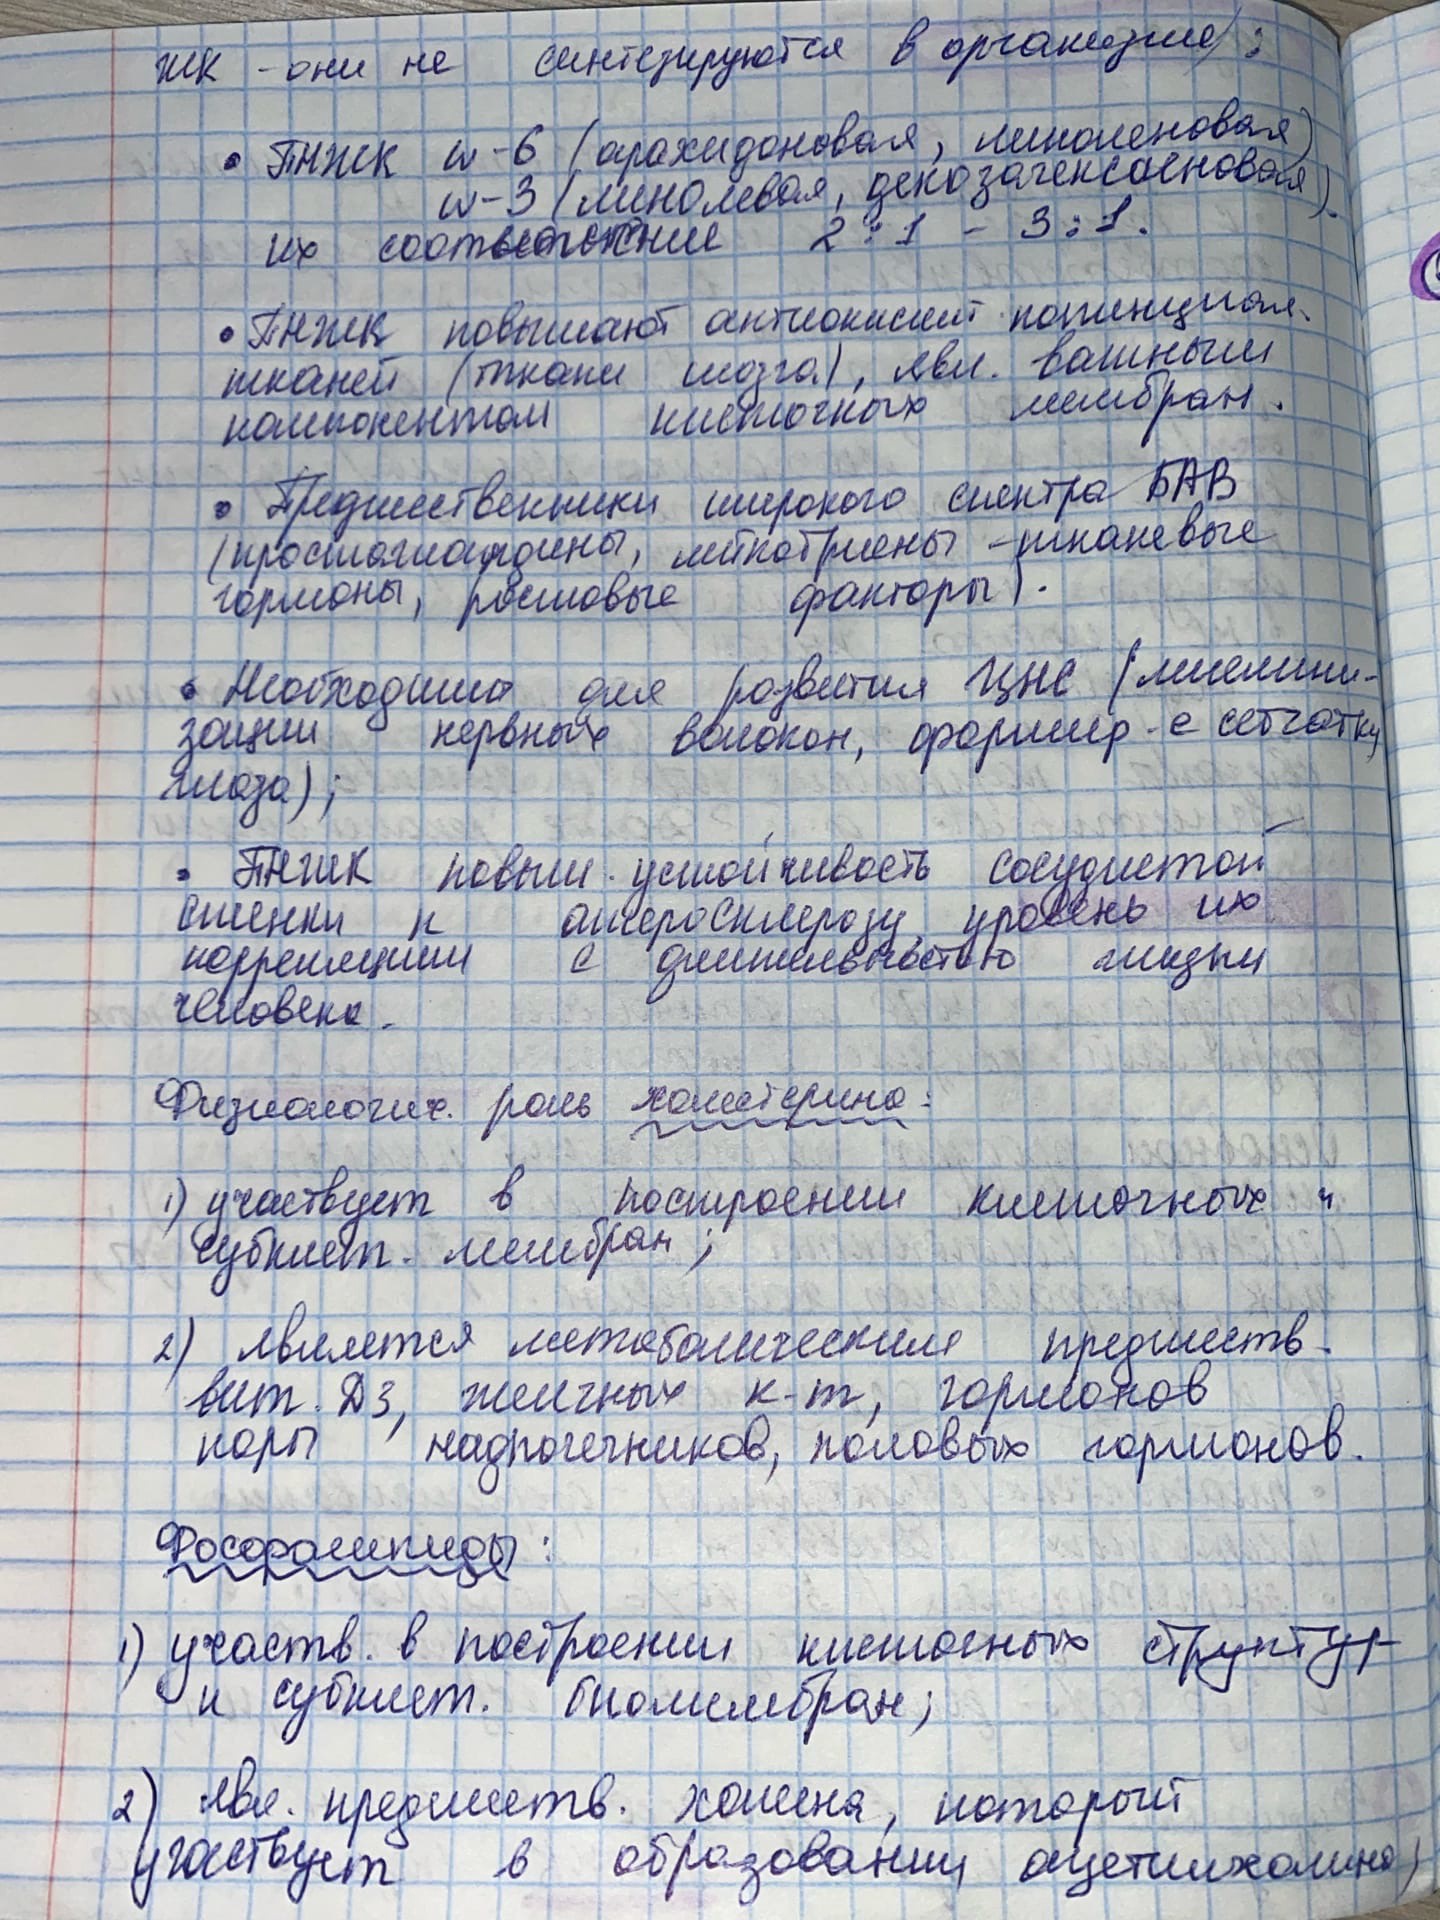 ЖК - они не синтезируются в организме);
• ПНЖК ω-6 (арахидоновая, линоленовая)
ω-3 (линолевая, декозагексаеновая).
их соотношение 2:1 - 3:1.
• ПНЖК повышают антиокислит. потенциал.
тканей (ткани мозга), явл. важным
компонентом клеточных мембран.
• Предшественники широкого спектра БАВ
(простагландины, лейкотриены - тканевые
гормоны, ростовые факторы).
• Необходимы для развития ЦНС (миелини-
зации нервных волокон, формир-е сетчатки
глаза);
• ПНЖК повыш. устойчивость сосудистой
стенки к атеросклерозу, уровень их
корреляции с длительностью жизни
человека.
Физиологич. роль холестерина:
1) участвует в построении клеточных и
субклет. мембран;
2) является метаболическим предшеств.
вит. Д3, желчных к-т, гормонов
коры надпочечников, половых гормонов.
Фосфолипиды:
1) участв. в построении клеточных структур
и субклет. биомембран;
2) явл. предшеств. холина, который
участвует в образовании ацетилхолина;